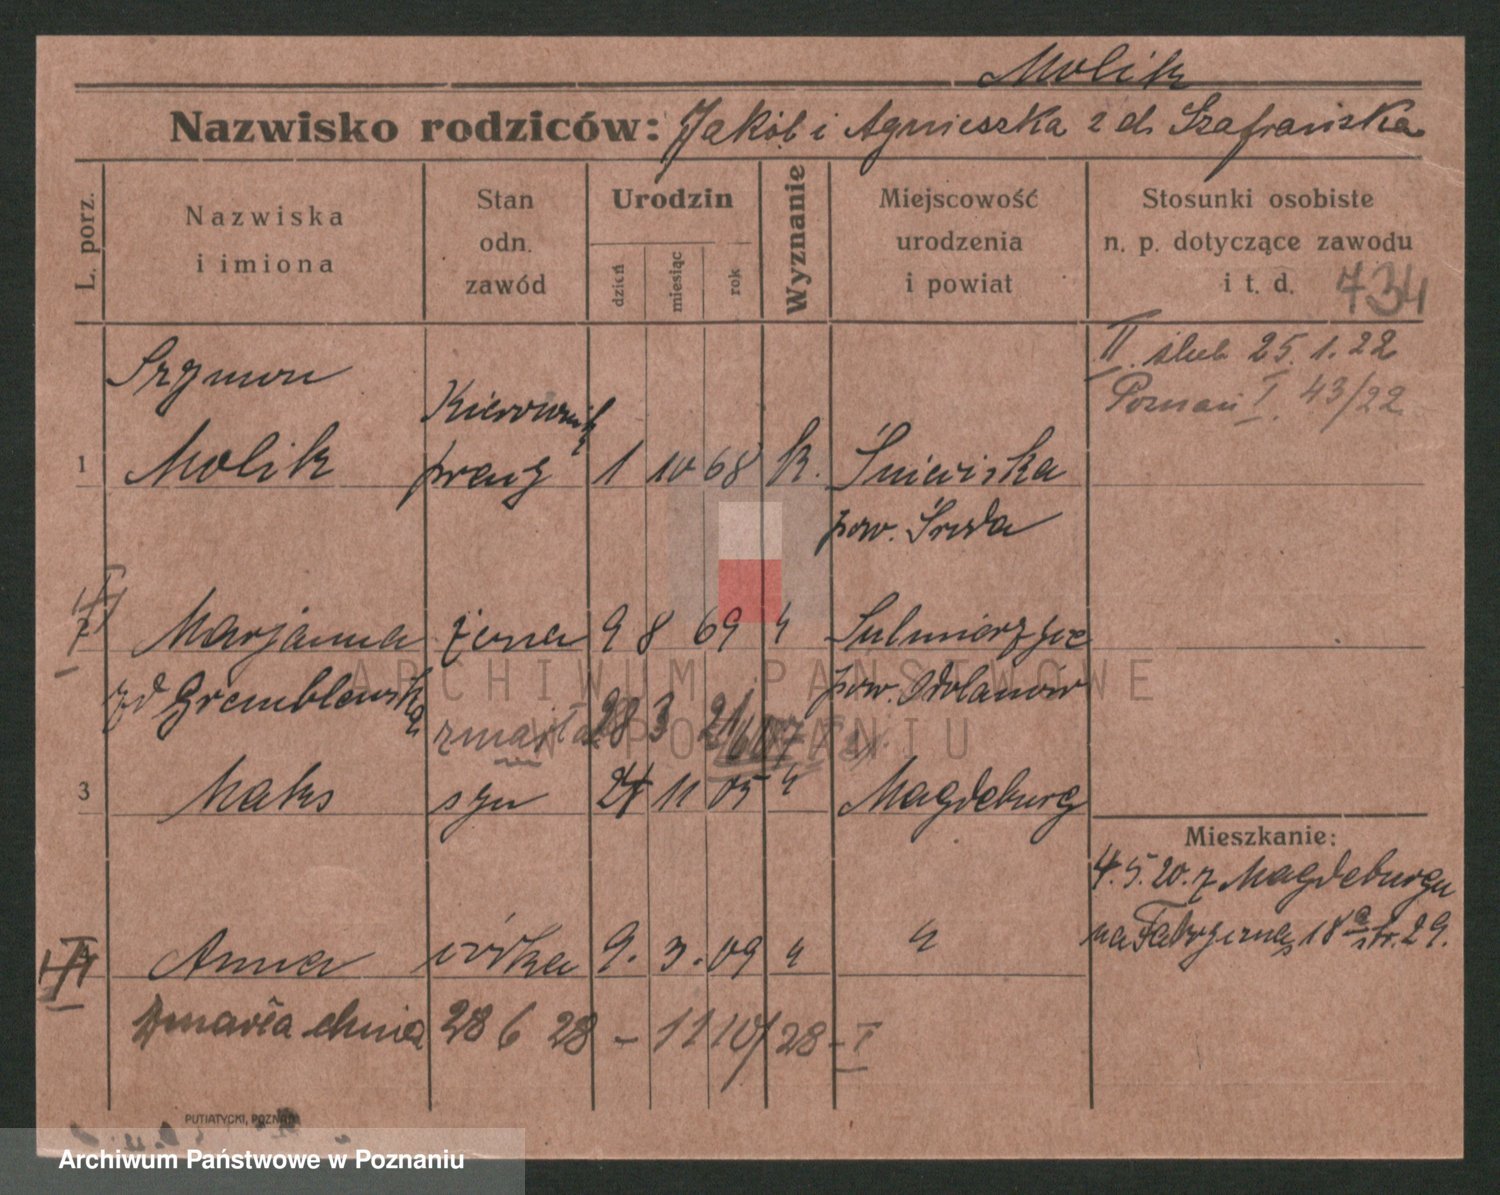 Molik
Nazwisko rodziców: Jakób i Agnieszka z d. Szafrańska
L. porz.
Nazwiska
i imiona
Stan
odn.
zawód
Urodzin
dzień
miesiąc
rok
Wyznanie
Miejscowość
urodzenia
i powiat
Stosunki osobiste
n. p. dotyczące zawodu
i t. d. 734
II. ślub 25.1.22
Poznań I. 43/22
Szymon
Kierownik
1 Molik pracy 1 10 68 k.
pow. Środa
Marjanna żona 9 8 69 " Sulmierzyce
zd Gremblewska pow. Odolanów
zmarła 28 3 21
3 Maks syn 24 11 05 " Magdeburg
Mieszkanie:
4.5.20. z Magdeburgu
na Fabryczną 18a str. 29.
Anna córka 9. 3. 09 " "
Zmarła dnia 28 6 28 - 1110/28 - I
PUTIATYCKI, POZNAŃ
ARCHIWUM PAŃSTWOWE
W POZNANIU
Archiwum Państwowe w Poznaniu